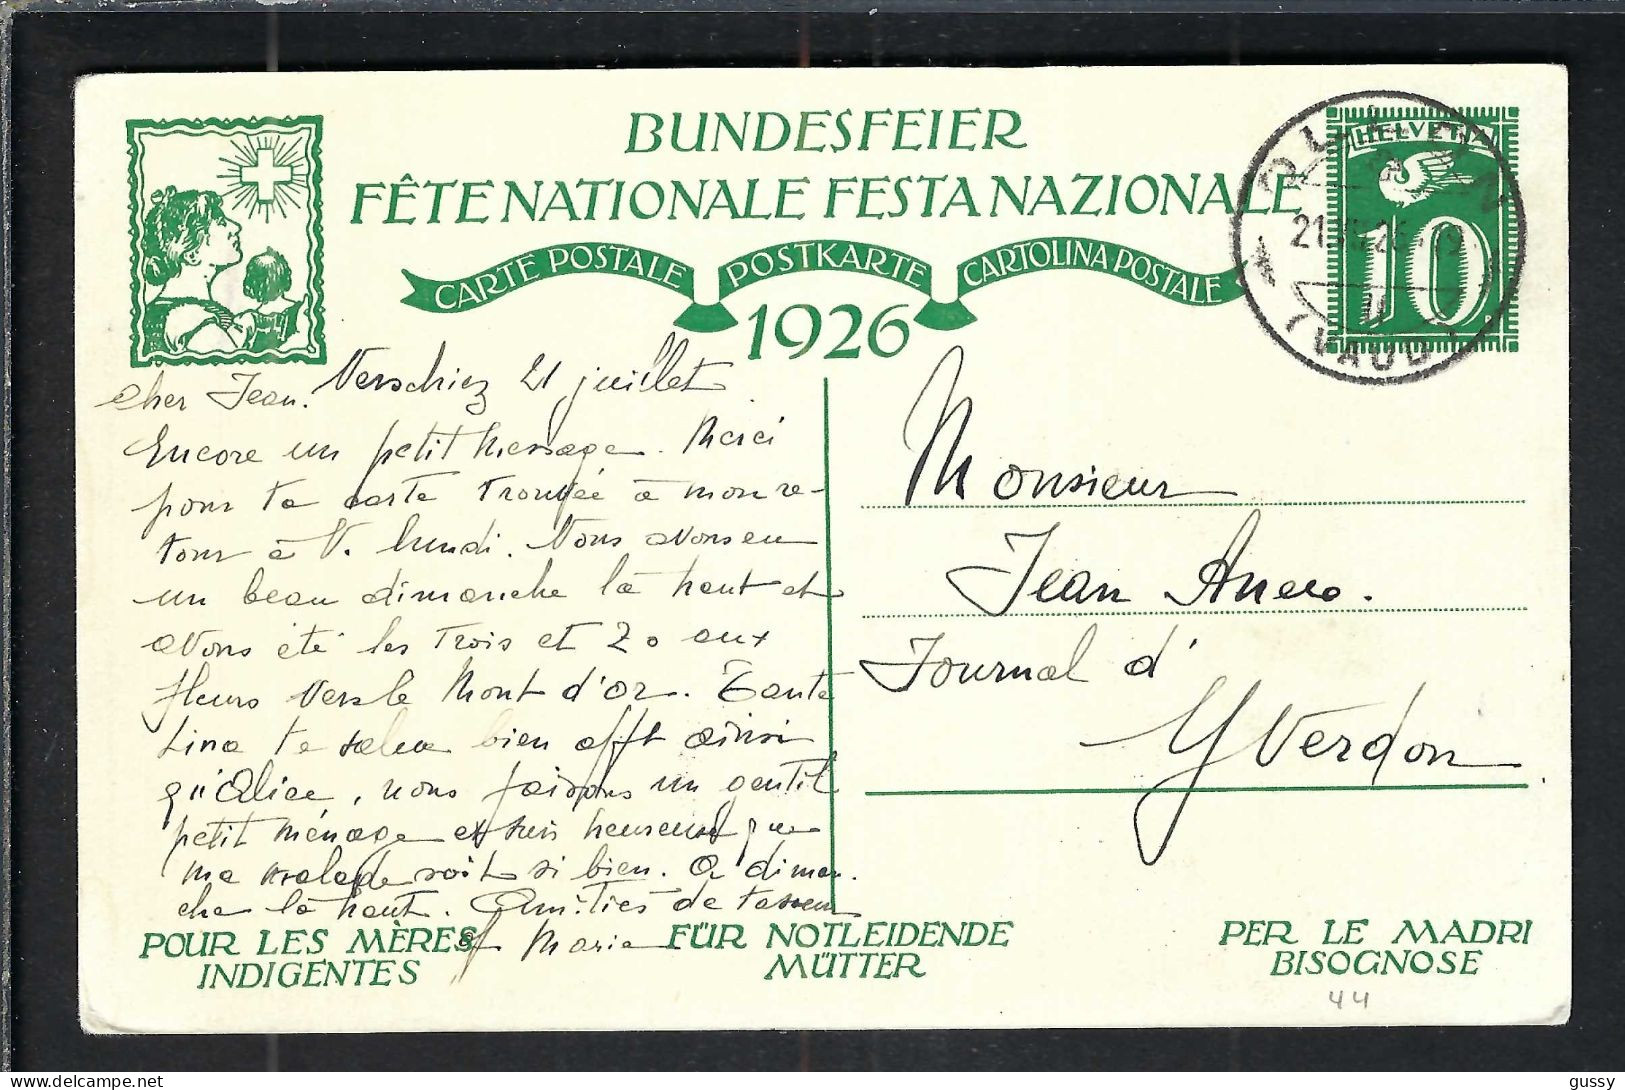 BUNDESFEIER
FÊTE NATIONALE FESTA NAZIONALE
CARTE POSTALE POSTKARTE CARTOLINA POSTALE
1926
HELVETIA
10
OLLON
21. 26.-19
(VAUD)
Verschiez 21 juillet
Cher Jean.
Encore un petit message. Merci
pour ta carte trouvée à mon re-
tour à V. lundi. Nous avons eu
un beau dimanche là haut et
avons été les trois et Zo aux
fleurs vers le Mont d'Or. Tante
Lina te salue bien afft ainsi
qu'Alice, nous faisons un gentil
petit ménage et suis heureuse que
ma malade soit si bien. A diman-
che là haut. Amitiés de ta soeur
Marie
Monsieur
Jean
Journal d'
Yverdon
POUR LES MÈRES
INDIGENTES
FÜR NOTLEIDENDE
MÜTTER
PER LE MADRI
BISOGNOSE
44
gussy